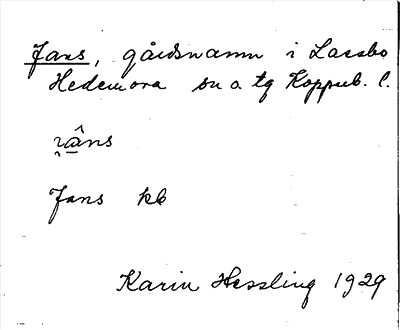 Jans, gårdsnamn i Lassbo
Hedemora sn o. tg Koppub. l.
Jans kb
Karin Hessling 1929